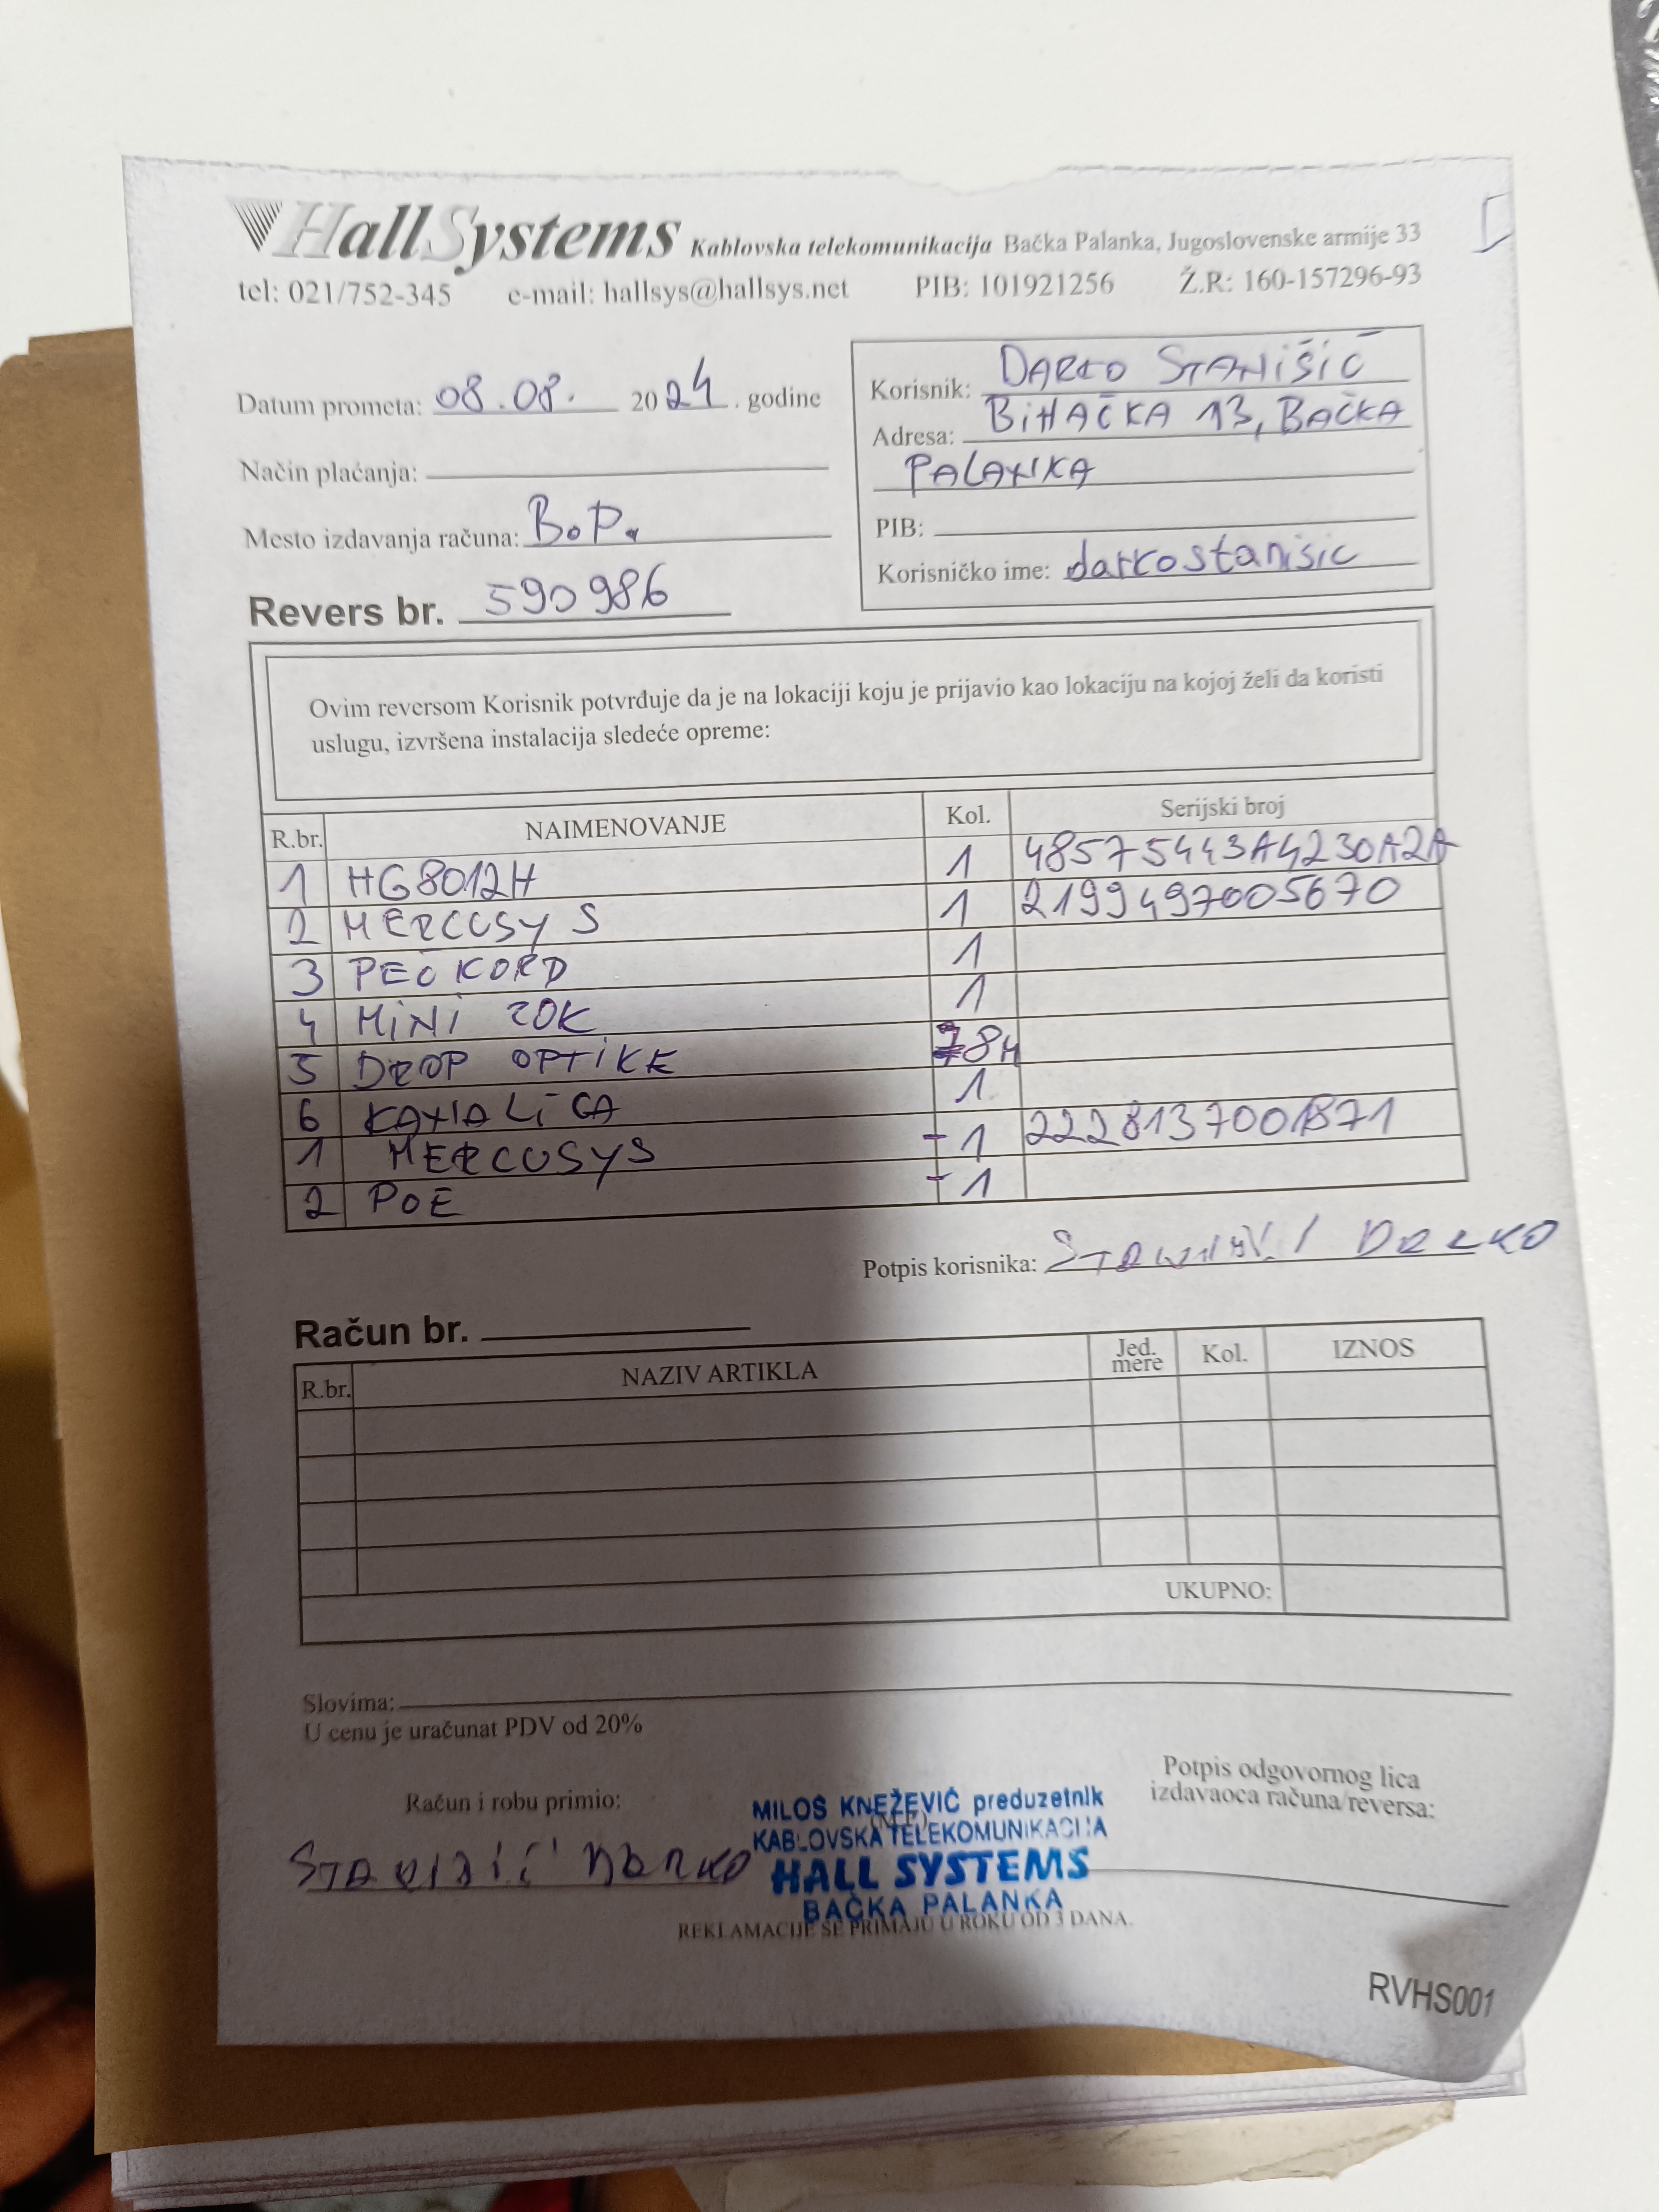 HallSystems Kablovska telekomunikacija Bačka Palanka, Jugoslovenske armije 33
tel: 021/752-345 e-mail: hallsys@hallsys.net PIB: 101921256 Ž.R: 160-157296-93
Datum prometa: 08.08. 2024. godine
Način plaćanja:
Mesto izdavanja računa: B.P.
Revers br. 590986
Korisnik: DARKO STANIŠIĆ
Adresa: BIHAĆKA 13, BAČKA
PALANKA
PIB:
Korisničko ime: darkostanisic
Ovim reversom Korisnik potvrđuje da je na lokaciji koju je prijavio kao lokaciju na kojoj želi da koristi
uslugu, izvršena instalacija sledeće opreme:
R.br. NAIMENOVANJE Kol. Serijski broj
1 HG8012H 1 485754443A4230A2A
2 MERCUSYS 1 2199497005670
3 PEČ KORD 1
4 MINI ZOK 1
5 DROP OPTIKE 78M
6 KANALICA 1
1 MERCUSYS -1 2228137001871
2 POE -1
Potpis korisnika: DARKO
Račun br.
R.br. NAZIV ARTIKLA Jed. mere Kol. IZNOS
UKUPNO:
Slovima:
U cenu je uračunat PDV od 20%
Račun i robu primio:
STANIŠIĆ DARKO
MILOŠ KNEŽEVIĆ preduzetnik
(M.P.)
KABLOVSKA TELEKOMUNIKACIJA
HALL SYSTEMS
BAČKA PALANKA
Potpis odgovornog lica
izdavaoca računa/reversa:
REKLAMACIJE SE PRIMAJU U ROKU OD 3 DANA.
RVHS001